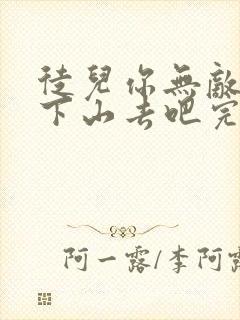 徒兒你無敵
下山去吧完
阿一露/李阿露